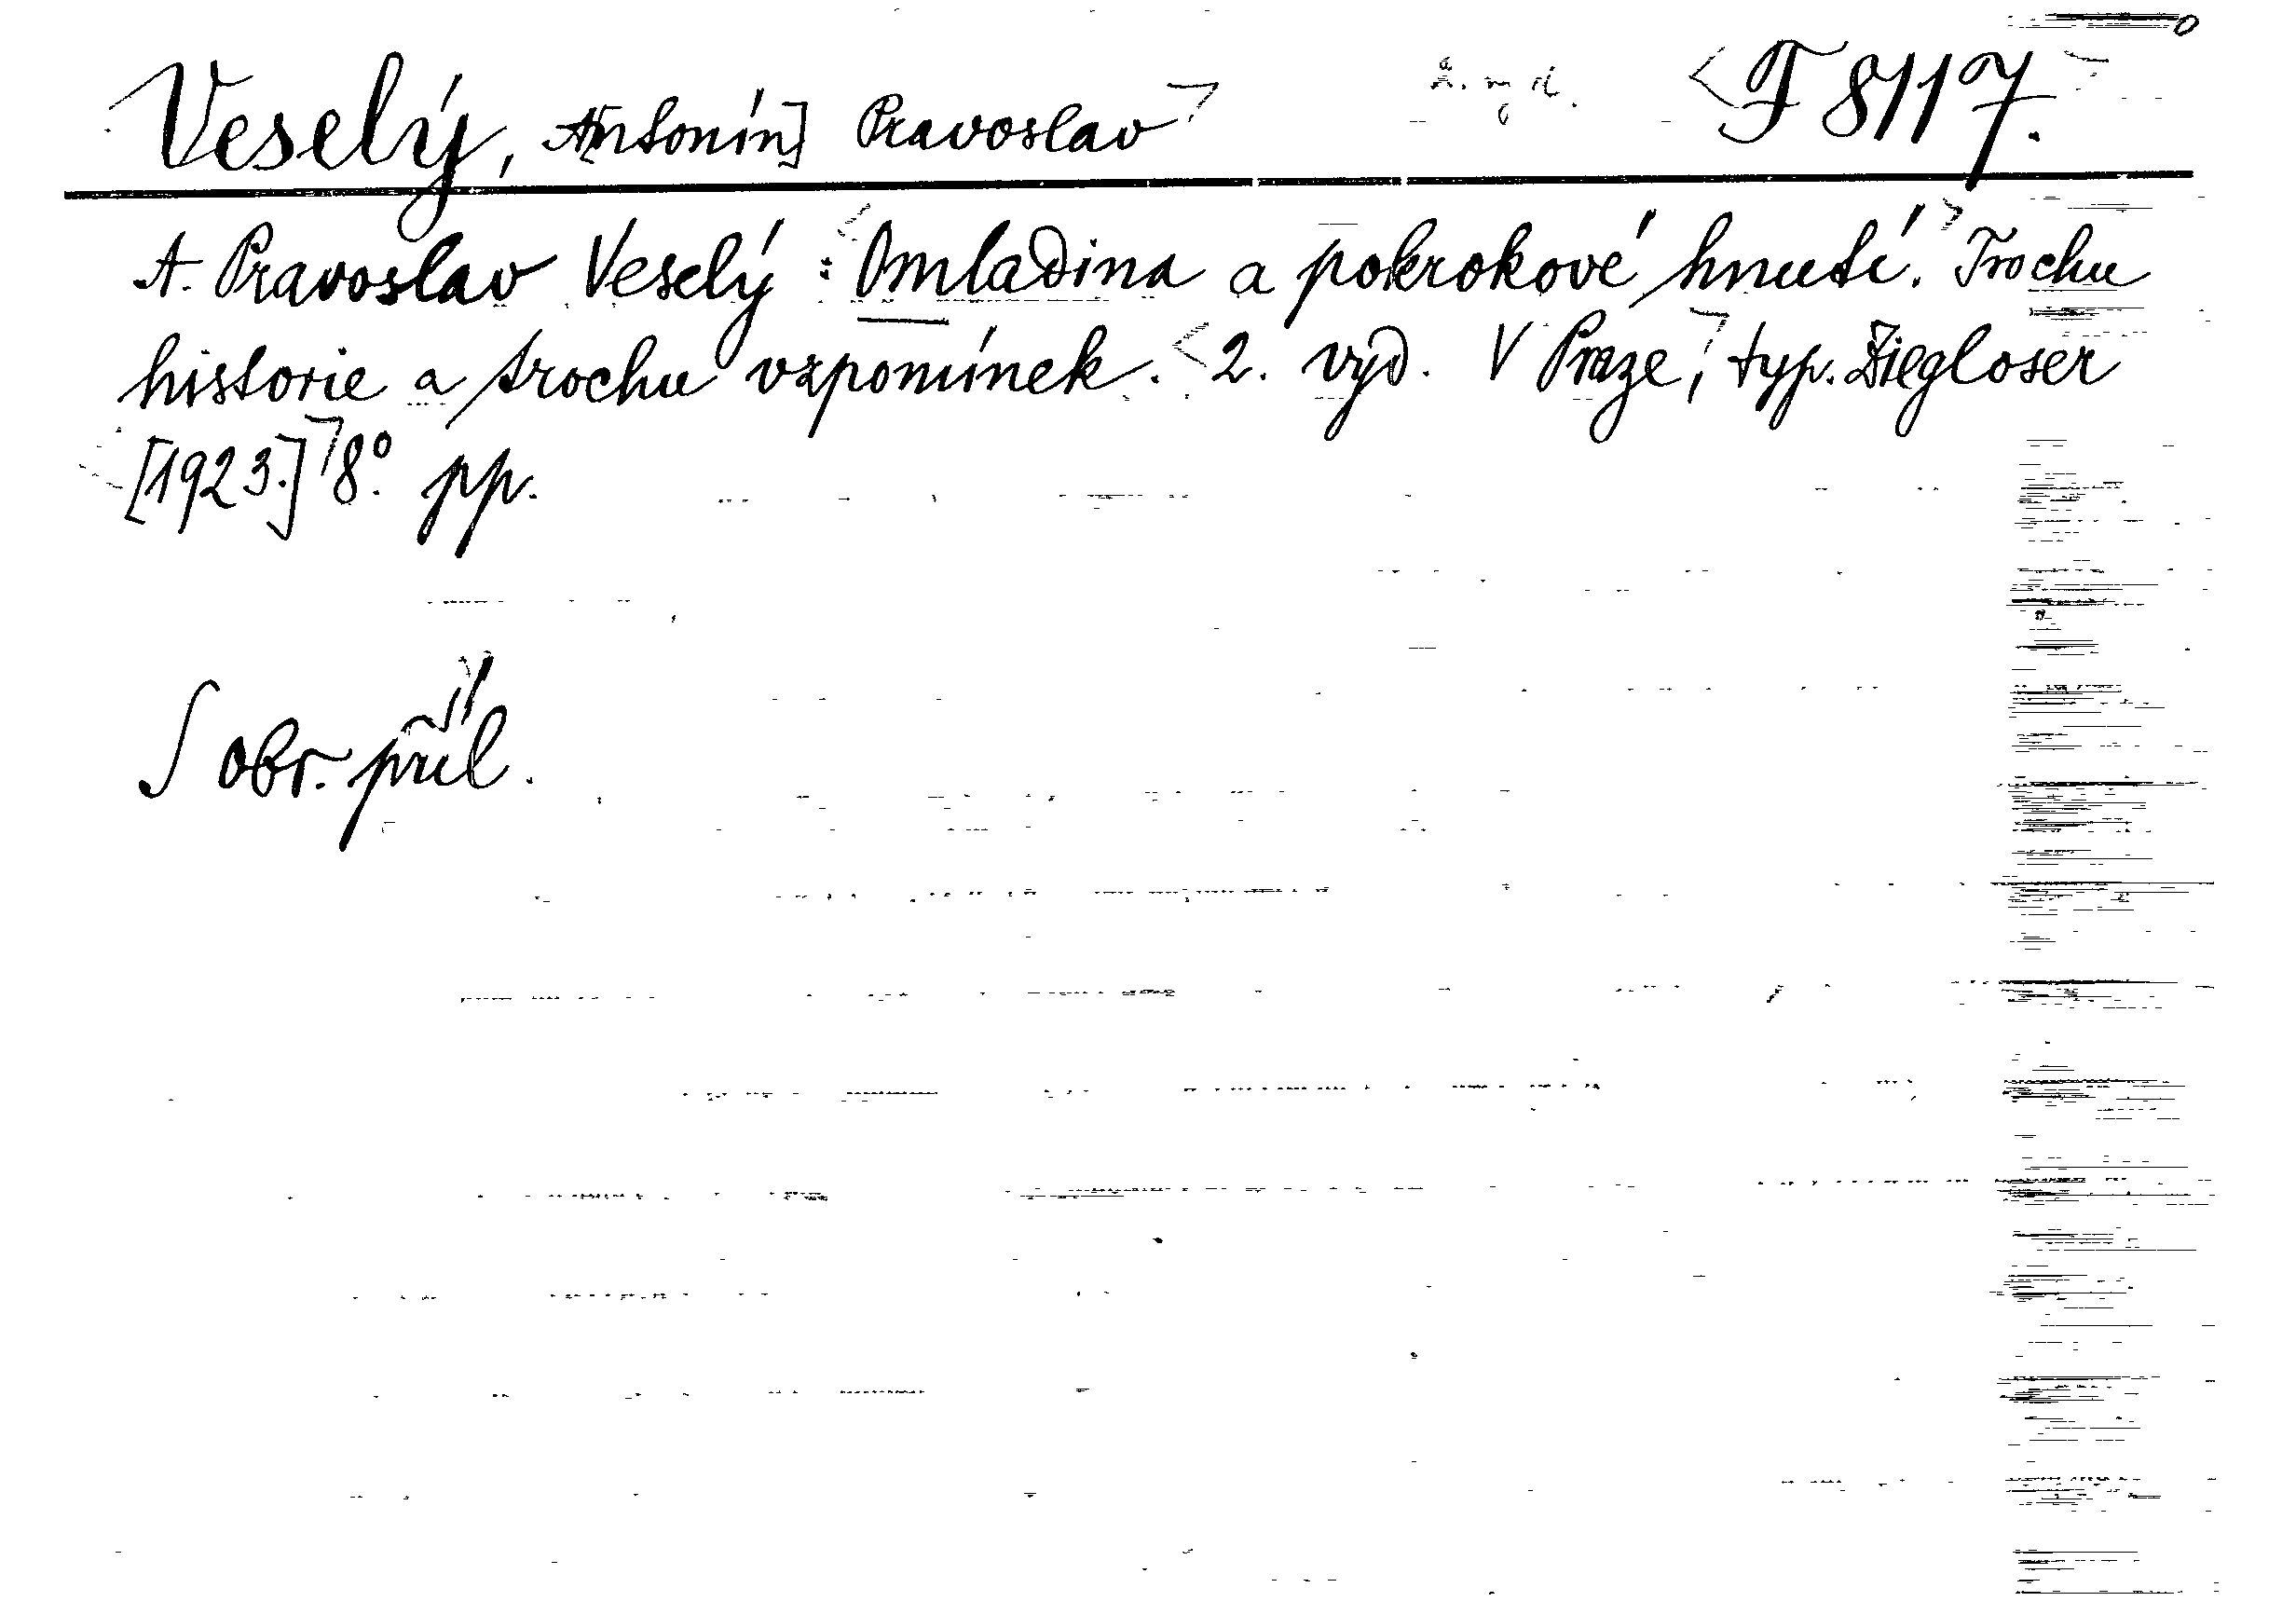 Veselý, A[ntonín] Pravoslav F 8117.
A. Pravoslav Veselý : Omladina a pokrokové hnutí. Trochu
historie a trochu vzpomínek. 2. vyd. V Praze, typ. Ziegloser
[1923.] 8º. pp.
S obr. příl.